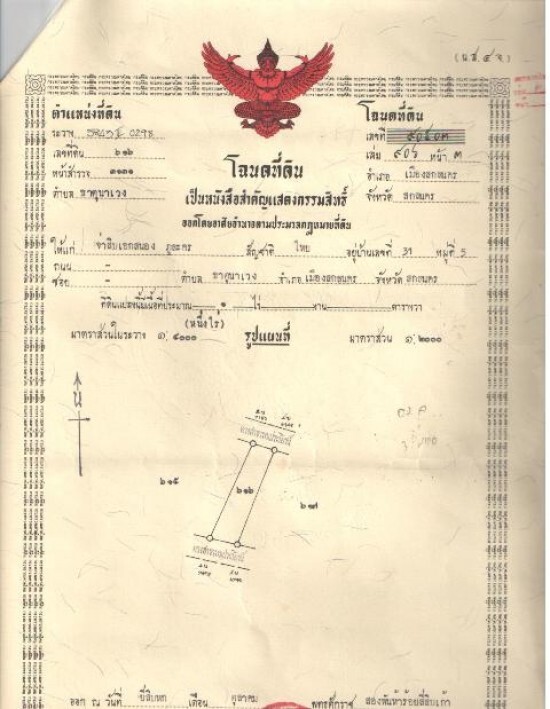 (น.ส.๔จ)
ตำแหน่งที่ดิน
ระวาง 5843 II 0298
เลขที่ดิน ๖๑๖
หน้าสำรวจ ๓๑๓๑
ตำบล ธาตุนาเวง
โฉนดที่ดิน
เลขที่
เล่ม ๙๐๖ หน้า ๓
อำเภอ เมืองสกลนคร
จังหวัด สกลนคร
โฉนดที่ดิน
เป็นหนังสือสำคัญแสดงกรรมสิทธิ์
ออกโดยอาศัยอำนาจตามประมวลกฎหมายที่ดิน
ให้แก่ จ่าสิบเอกสนอง ภูละคร สัญชาติ ไทย อยู่บ้านเลขที่ 31 หมู่ที่ 5
ถนน -
ซอย - ตำบล ธาตุนาเวง อำเภอ เมืองสกลนคร จังหวัด สกลนคร
ที่ดินแปลงนี้มีเนื้อที่ประมาณ ๑ ไร่ งาน ตารางวา
(หนึ่งไร่)
มาตราส่วนในระวาง ๑:๔๐๐๐ รูปแผนที่ มาตราส่วน ๑:๒๐๐๐
น
ทางสาธารณประโยชน์
๖๑๕ ๖๑๖ ๖๑๗
ทางสาธารณประโยชน์
ออก ณ วันที่ ยี่สิบหก เดือน ตุลาคม พุทธศักราช สองพันห้าร้อยสี่สิบเก้า